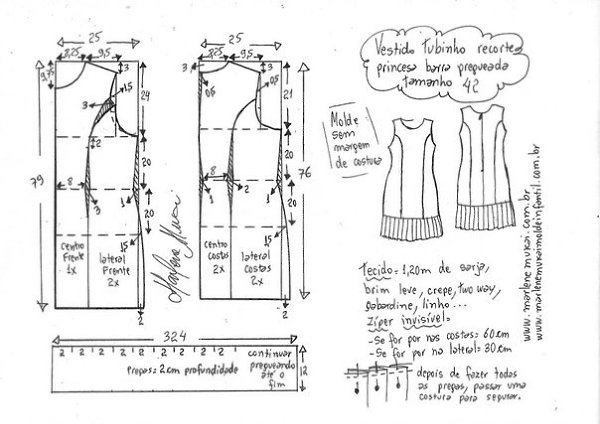 25
8,25
9,5
9,75
3
1,5
3
24
2
20
8
3
1
20
79
15
centro
Frente
1x
lateral
Frente
2x
2
Marlene Mukai
25
8,25
9,5
3
3
0,5
0,5
21
20
8
2
1
1
20
76
15
centro
costas
2x
lateral
Costas
2x
2
324
2 2 2 2 2 2 2 2 2 2
continuar
pregueando
até o
fim
Pregas = 2cm profundidade
12
Vestido Tubinho recortes
princesa barra pregueada
tamanho 42
Molde
sem
margem
de costura
www.marlenemukai.com.br
www.marlenemukaimoldeinfantil.com.br
Tecido = 1,20m de sarja,
brim leve, crepe, two way,
gabardine, linho...
Zíper invisível =
- Se for por nas costas = 60cm
- Se for por na lateral = 30cm
depois de fazer todas
as pregas, passar uma
costura para segurar.